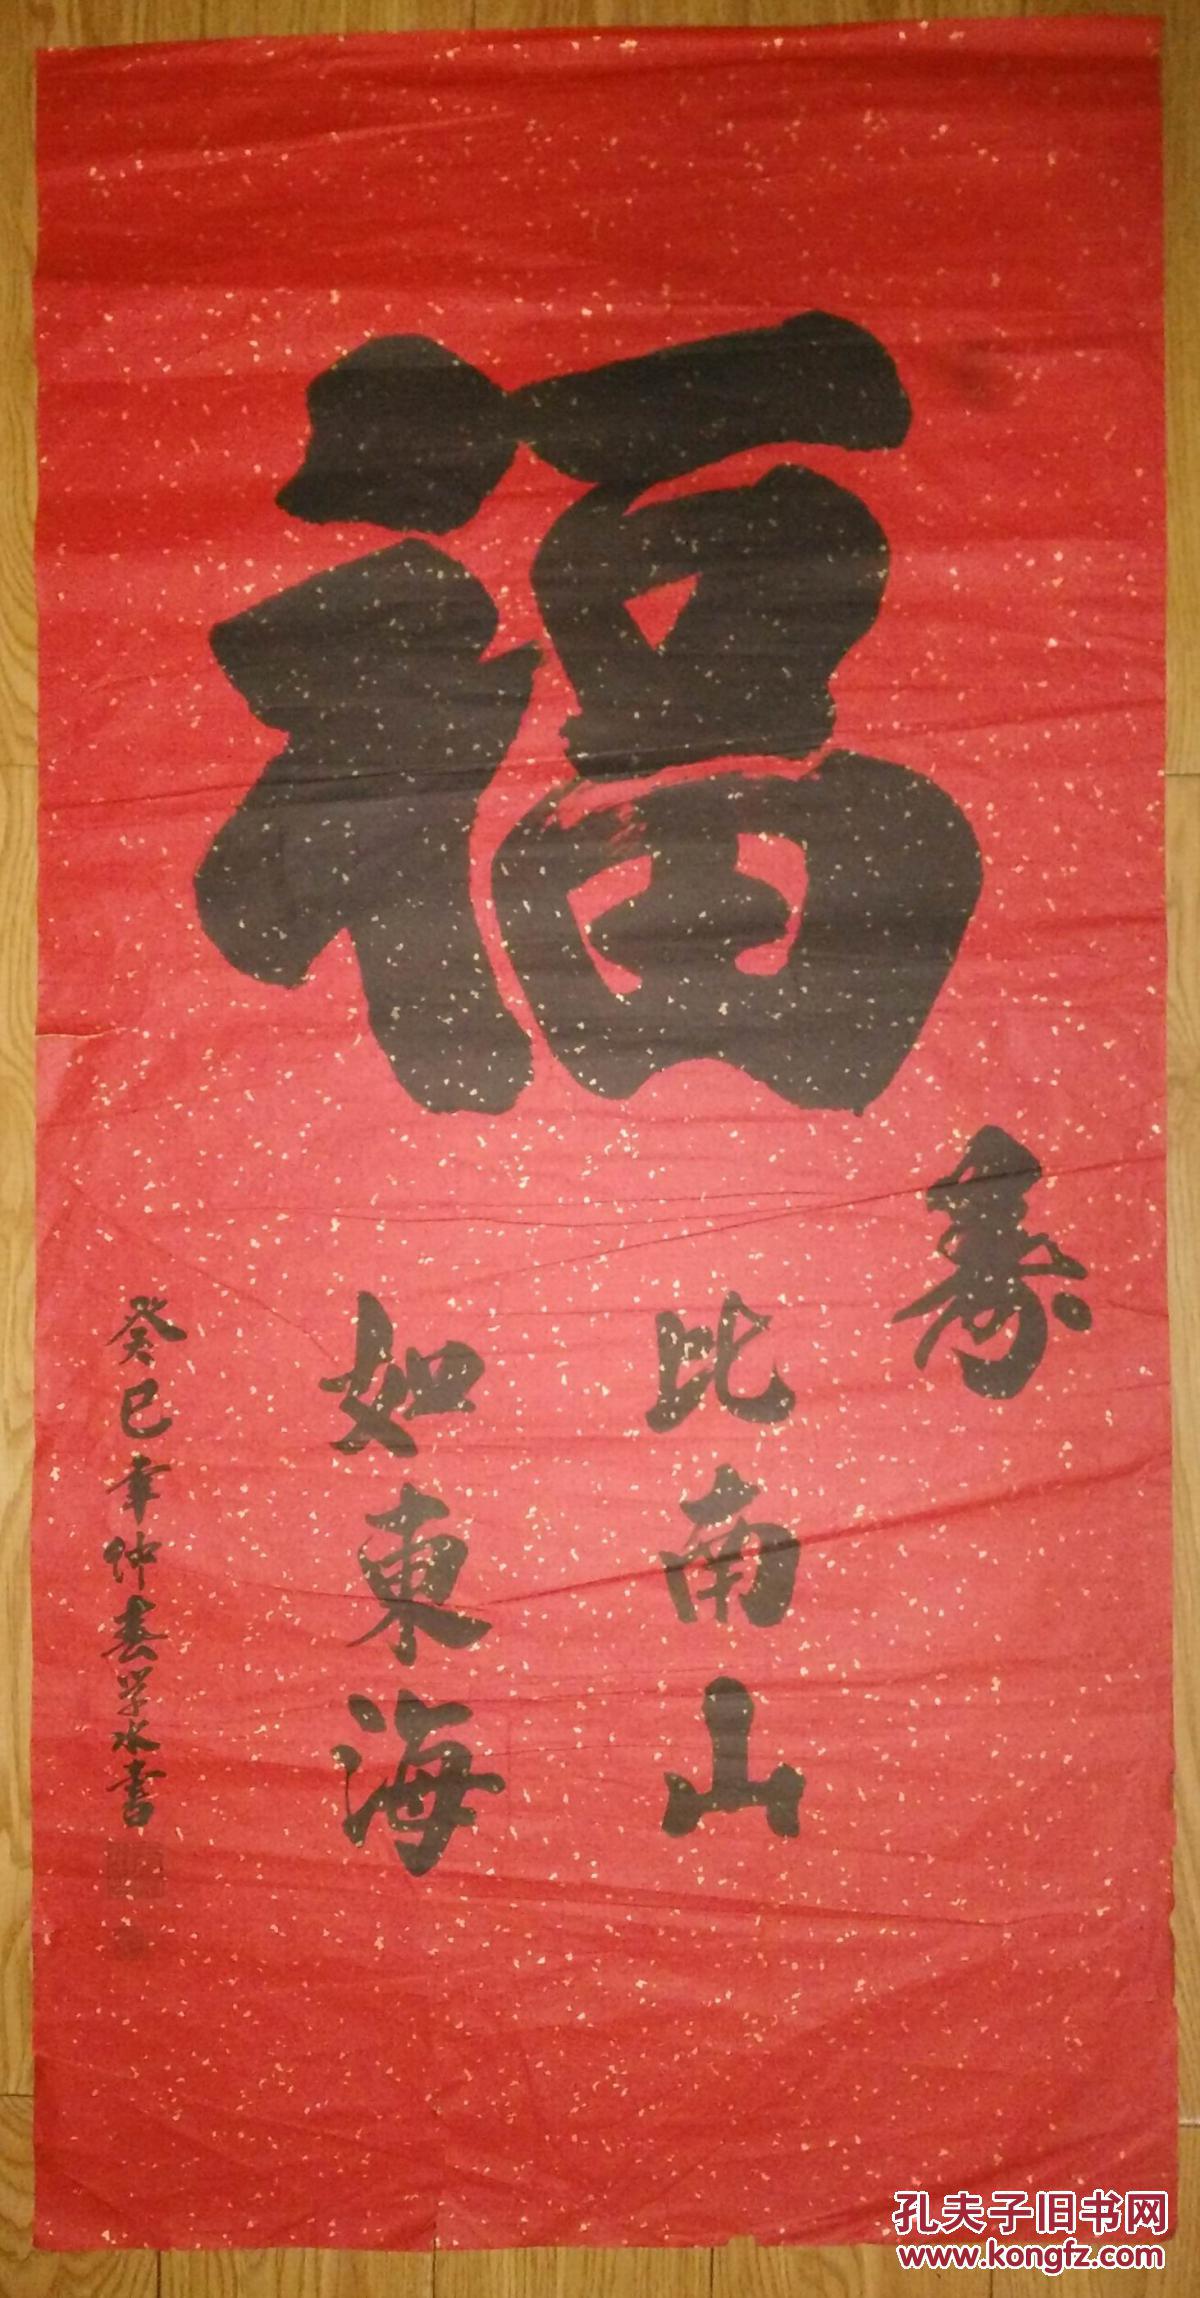 福
寿
比南山
如東海
癸巳年仲春学水書
孔夫子旧书网
www.kongfz.com